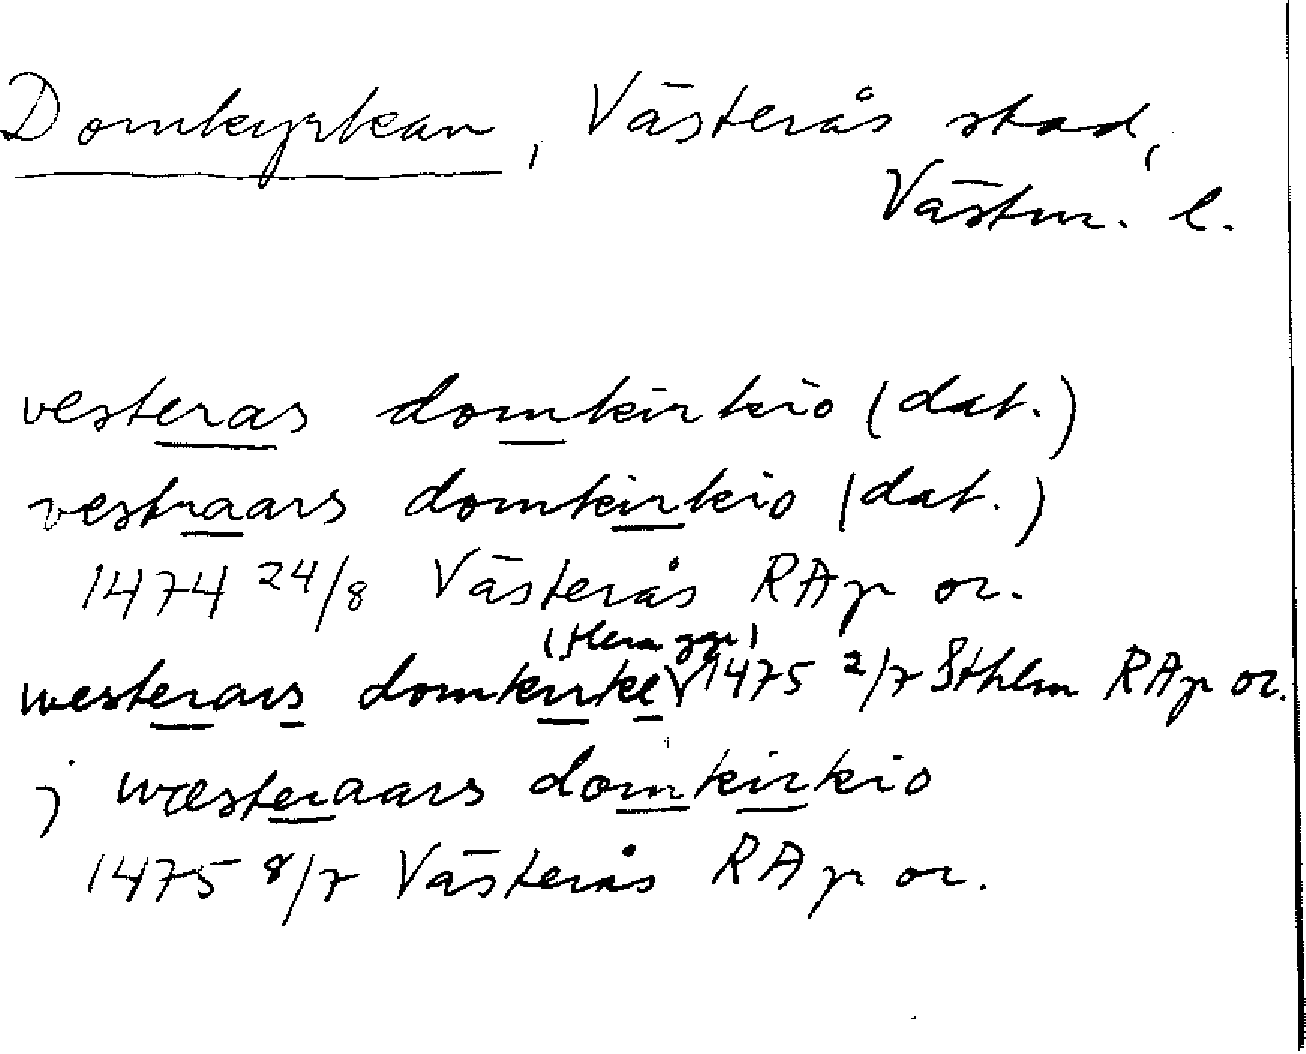 Domkyrkan, Västerås stad,
Västm. l.
vesteras domkirkio (dat.)
vestraars domkirkio (dat.)
1474 24/8 Västerås RAp or.
(flera ggr)
westerars domkirke 1475 2/7 Sthlm RAp or.
j wæsteraars domkirkio
1475 8/7 Västerås RAp or.